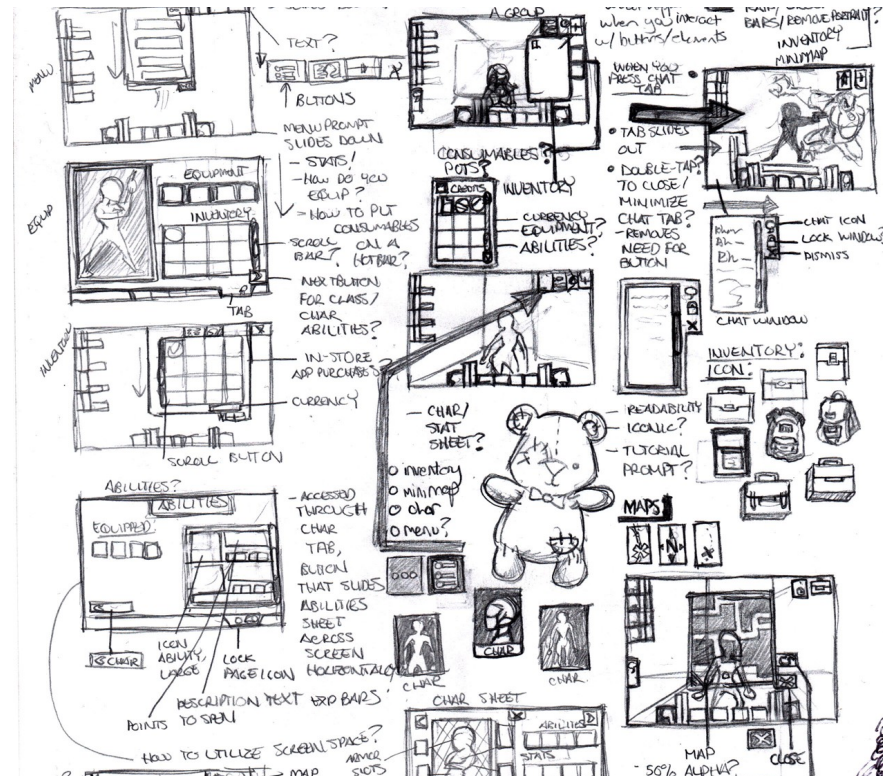 MENU
TEXT?
BUTTONS
MENU PROMPT
SLIDES DOWN
- STATS/
- HOW DO YOU
EQUIP?
- HOW TO PUT
CONSUMABLES
ON A
HOTBAR?
EQUIP
EQUIPMENT
INVENTORY
SCROLL
BAR?
NEXT BUTTON
FOR CLASS/
CHAR
ABILITIES?
TAB
INVENTORY
IN-STORE
APP PURCHASES?
CURRENCY
SCROLL BUTTON
ABILITIES?
ABILITIES
EQUIPPED:
- ACCESSED
THROUGH
CHAR
TAB,
BUTTON
THAT SLIDES
ABILITIES
SHEET
ACROSS
SCREEN
HORIZONTALLY
CHAR
ICON
ABILITY,
LARGE
LOCK
PAGE ICON
DESCRIPTION TEXT EXP BARS?
POINTS TO SPEND
- HOW TO UTILIZE SCREEN SPACE?
MAP
A GROUP
CONSUMABLES?
POTS?
INVENTORY
CREDITS
CURRENCY
EQUIPMENT?
ABILITIES?
- CHAR/
STAT
SHEET?
o inventory
o minimap
o char
o menu?
CHAR
CHAR
CHAR
CHAR SHEET
ARMOR
SLOTS
ABILITIES
STATS
when you interact
w/ buttons/elements
BARS/REMOVE PORTRAIT?
INVENTORY
MINIMAP
WHEN YOU
PRESS CHAT
TAB
• TAB SLIDES
OUT
• DOUBLE-TAP?
TO CLOSE/
MINIMIZE
CHAT TAB?
- REMOVES
NEED FOR
BUTTON
CHAT ICON
LOCK WINDOW?
DISMISS
CHAT WINDOW
INVENTORY:
ICON:
- READABILITY
- ICONIC?
- TUTORIAL
PROMPT?
MAPS
N
MAP
- 50% ALPHA?
CLOSE